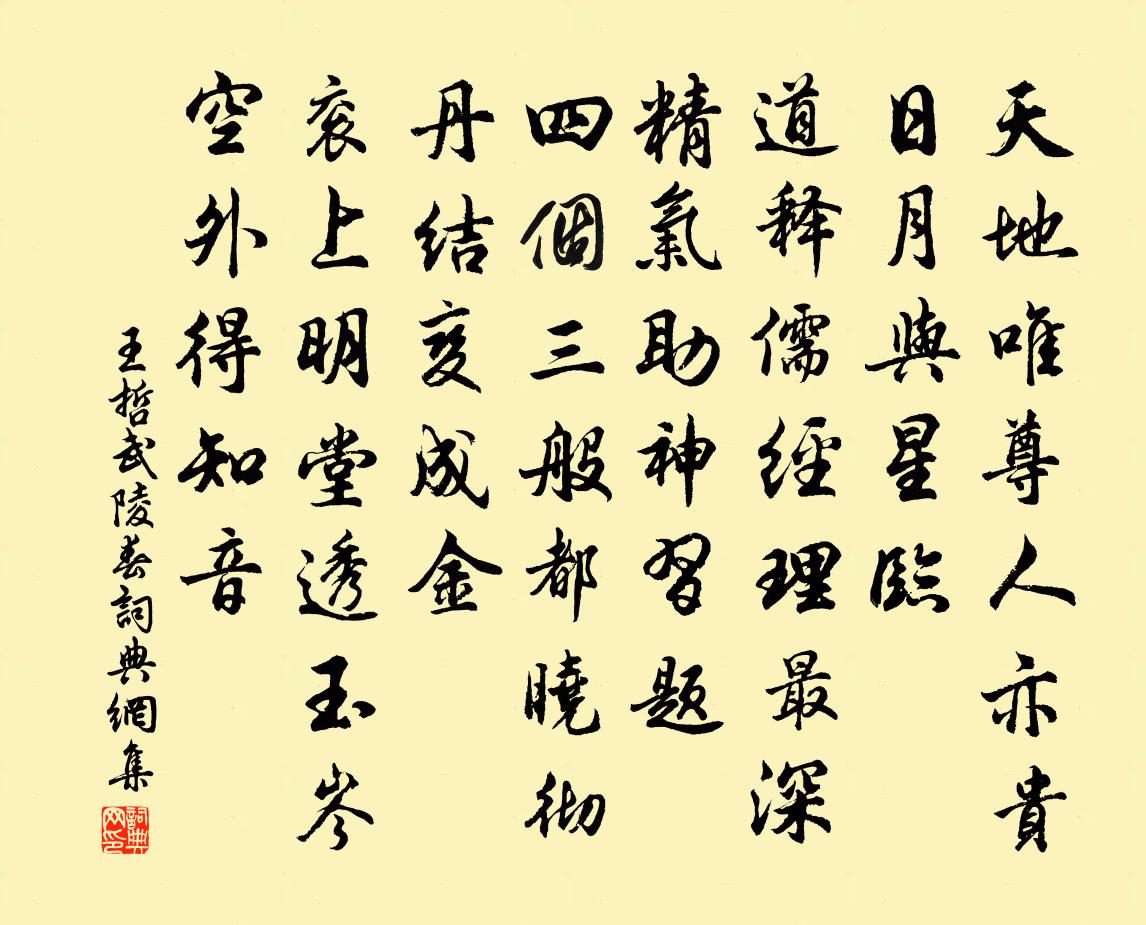 天地唯尊人亦貴
日月與星臨
道释儒經理最深
精氣助神習题
四個三般都曉彻
丹结变成金
衮上明堂透玉岑
空外得知音
王哲武陵春詞典網集
詞典网印